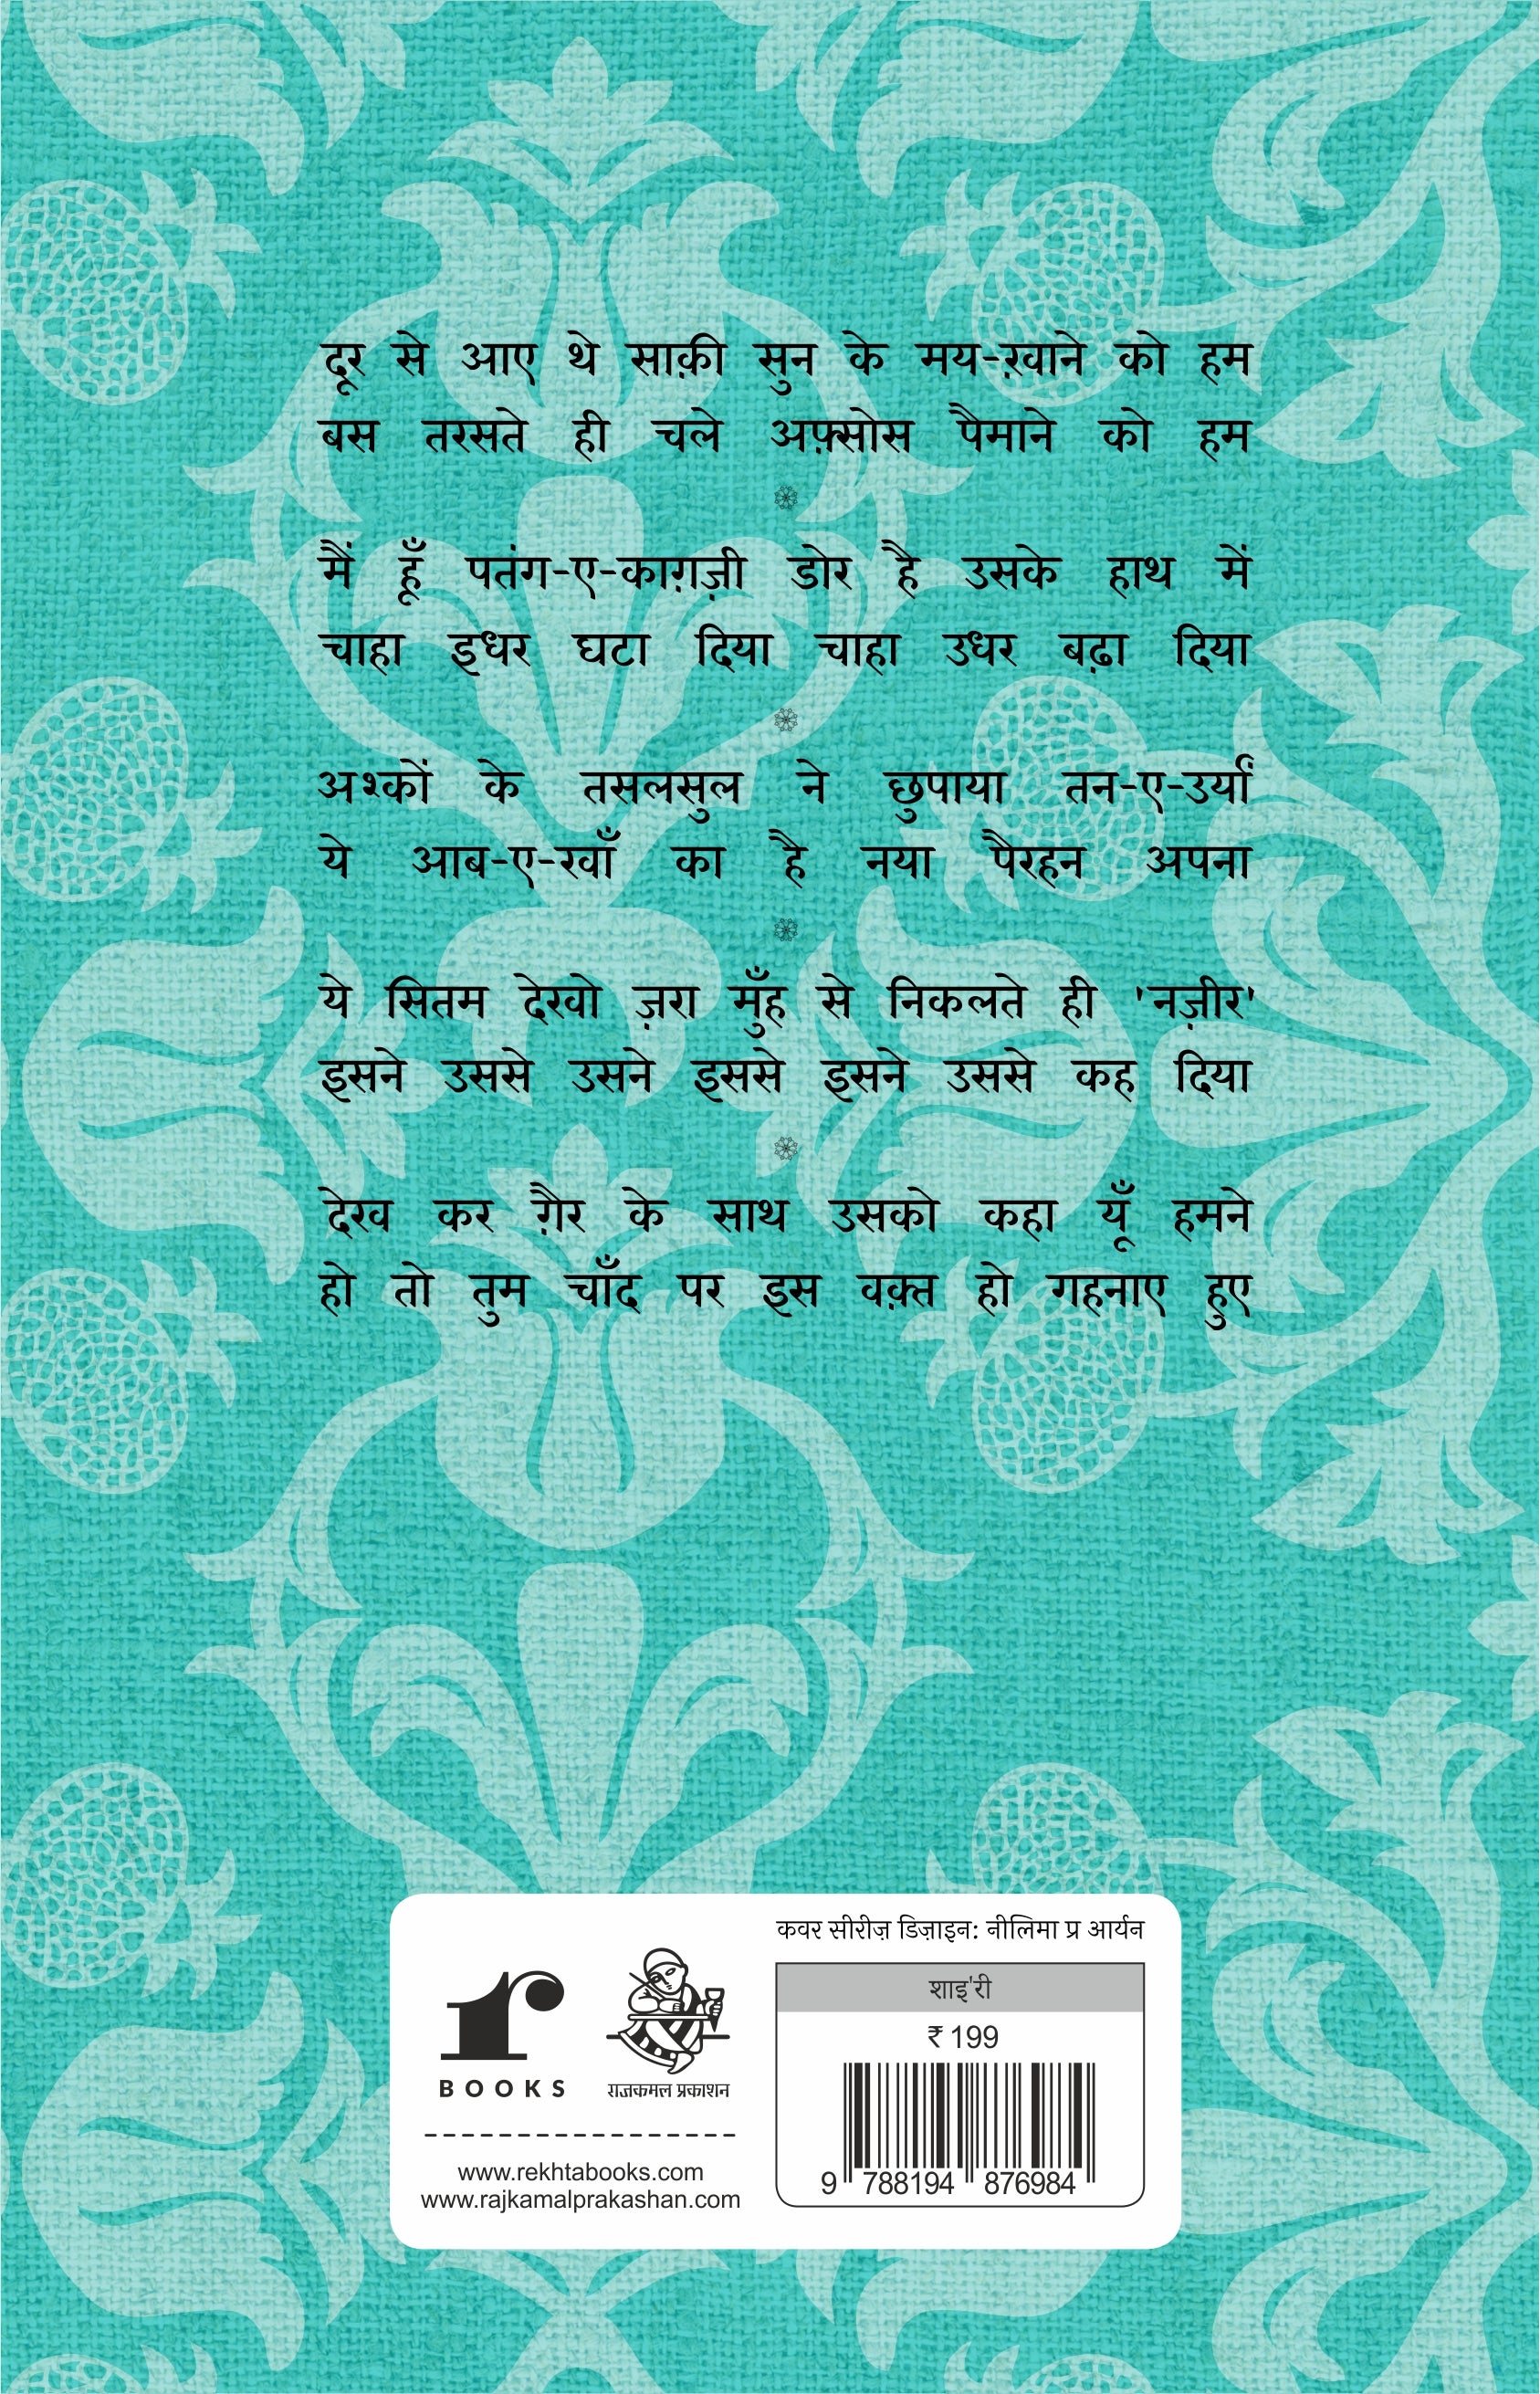 दूर से आए थे साक़ी सुन के मय-ख़ाने को हम
बस तरसते ही चले अफ़्सोस पैमाने को हम
मैं हूँ पतंग-ए-काग़ज़ी डोर है उसके हाथ में
चाहा इधर घटा दिया चाहा उधर बढ़ा दिया
अश्कों के तसलसुल ने छुपाया तन-ए-उर्यां
ये आब-ए-रवाँ का है नया पैरहन अपना
ये सितम देखो ज़रा मुँह से निकलते ही 'नज़ीर'
इसने उससे उसने इससे इसने उससे कह दिया
देख कर ग़ैर के साथ उसको कहा यूँ हमने
हो तो तुम चाँद पर इस वक़्त हो गहनाए हुए
कवर सीरीज़ डिज़ाइन: नीलिमा प्र आर्यन
r
BOOKS
राजकमल प्रकाशन
www.rekhtabooks.com
www.rajkamalprakashan.com
शाइ'री
₹ 199
9 788194 876984